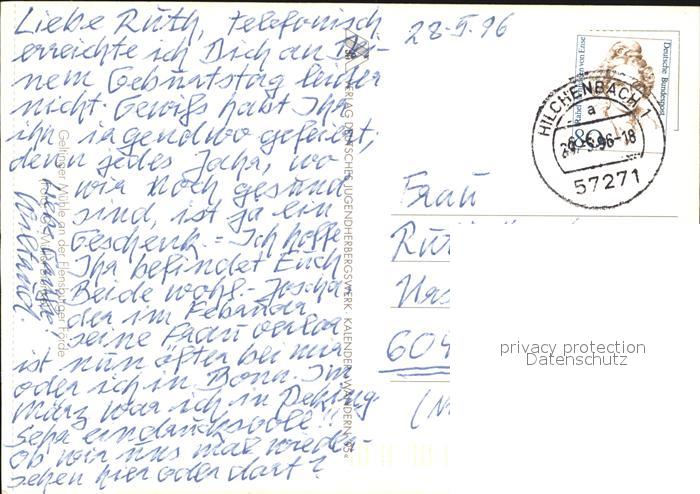 Liebe Ruth, telefonisch
erreichte ich Dich an Dei-
nem Geburtstag leider
nicht. Gewiß habt Ihr
ihn irgendwo gefeiert,
denn jedes Jahr, wo
wir noch gesund
sind, ist ja ein
Geschenk. - Ich hoffe,
Ihr befindet Euch
Beide wohl. - Joscha
der im Febauar
seine Frau verlor
ist nun öfter bei mir
oder ich in Bonn. Im
März war ich in Peking
Sehr eindrucksvoll!!
Ob wir uns mal wieder-
sehen hier oder dort?
Geltinger Mühle an der Flensburger Förde
VERLAG DEUTSCHES JUGENDHERBERGSWERK KALENDER WANDERN
28.5.96
Deutsche Bundespost
Rahel Varnhagen von Ense
80
HILCHENBACH 1
a
96-18
57271
Frau
Ru
604
privacy protection
Datenschutz